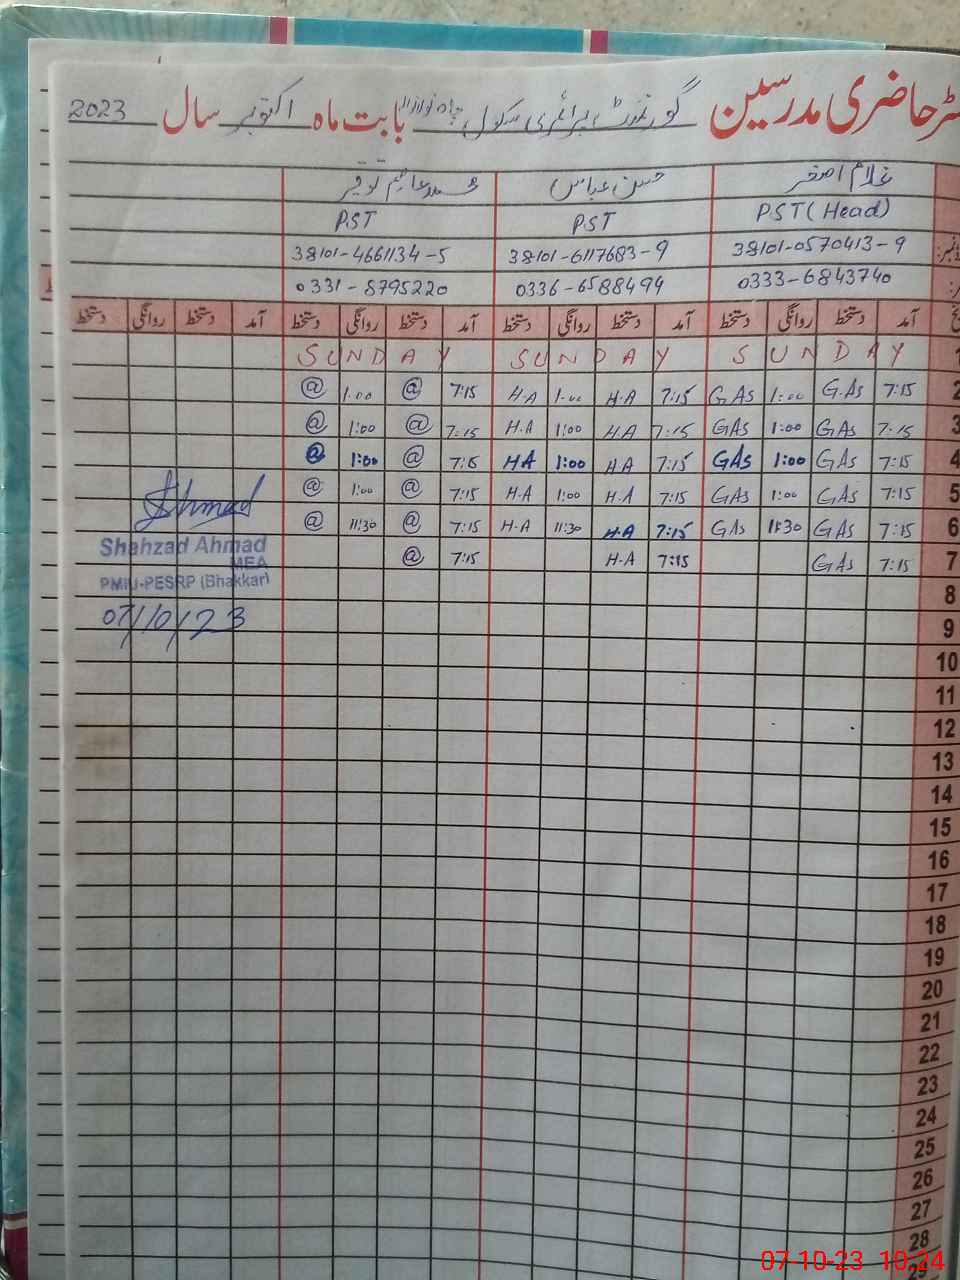 رجسٹر حاضری مدرسین گورنمنٹ پرائمری سکول بابت ماہ اکتوبر سال 2023
غلام اصغر حسن عباس محمد عاصم توقیر
PST (Head) PST PST
38101-0570413-9 38101-6117683-9 38101-4661134-5
0333-6843740 0336-6588494 0331-8795220
آمد دستخط روانگی دستخط آمد دستخط روانگی دستخط آمد دستخط روانگی دستخط آمد دستخط روانگی دستخط
1 SUNDAY SUNDAY SUNDAY
2 7:15 GAS 1:00 GAS 7:15 H.A 1:00 H.A 7:15 @ 1:00 @
3 7:15 GAS 1:00 GAS 7:15 H.A 1:00 H.A 7:15 @ 1:00 @
4 7:15 GAS 1:00 GAS 7:15 H.A 1:00 H.A 7:15 @ 1:00 @
5 7:15 GAS 1:00 GAS 7:15 H.A 1:00 H.A 7:15 @ 1:00 @
6 7:15 GAS 11:30 GAS 7:15 H.A 11:30 H.A 7:15 @ 11:30 @
7 7:15 GAS 7:15 H.A 7:15 @
Ahmad
Shahzad Ahmad
MEA
PMIU-PESRP (Bhakkar)
07/10/23
8
9
10
11
12
13
14
15
16
17
18
19
20
21
22
23
24
25
26
27
28
29
07-10-23 10:24